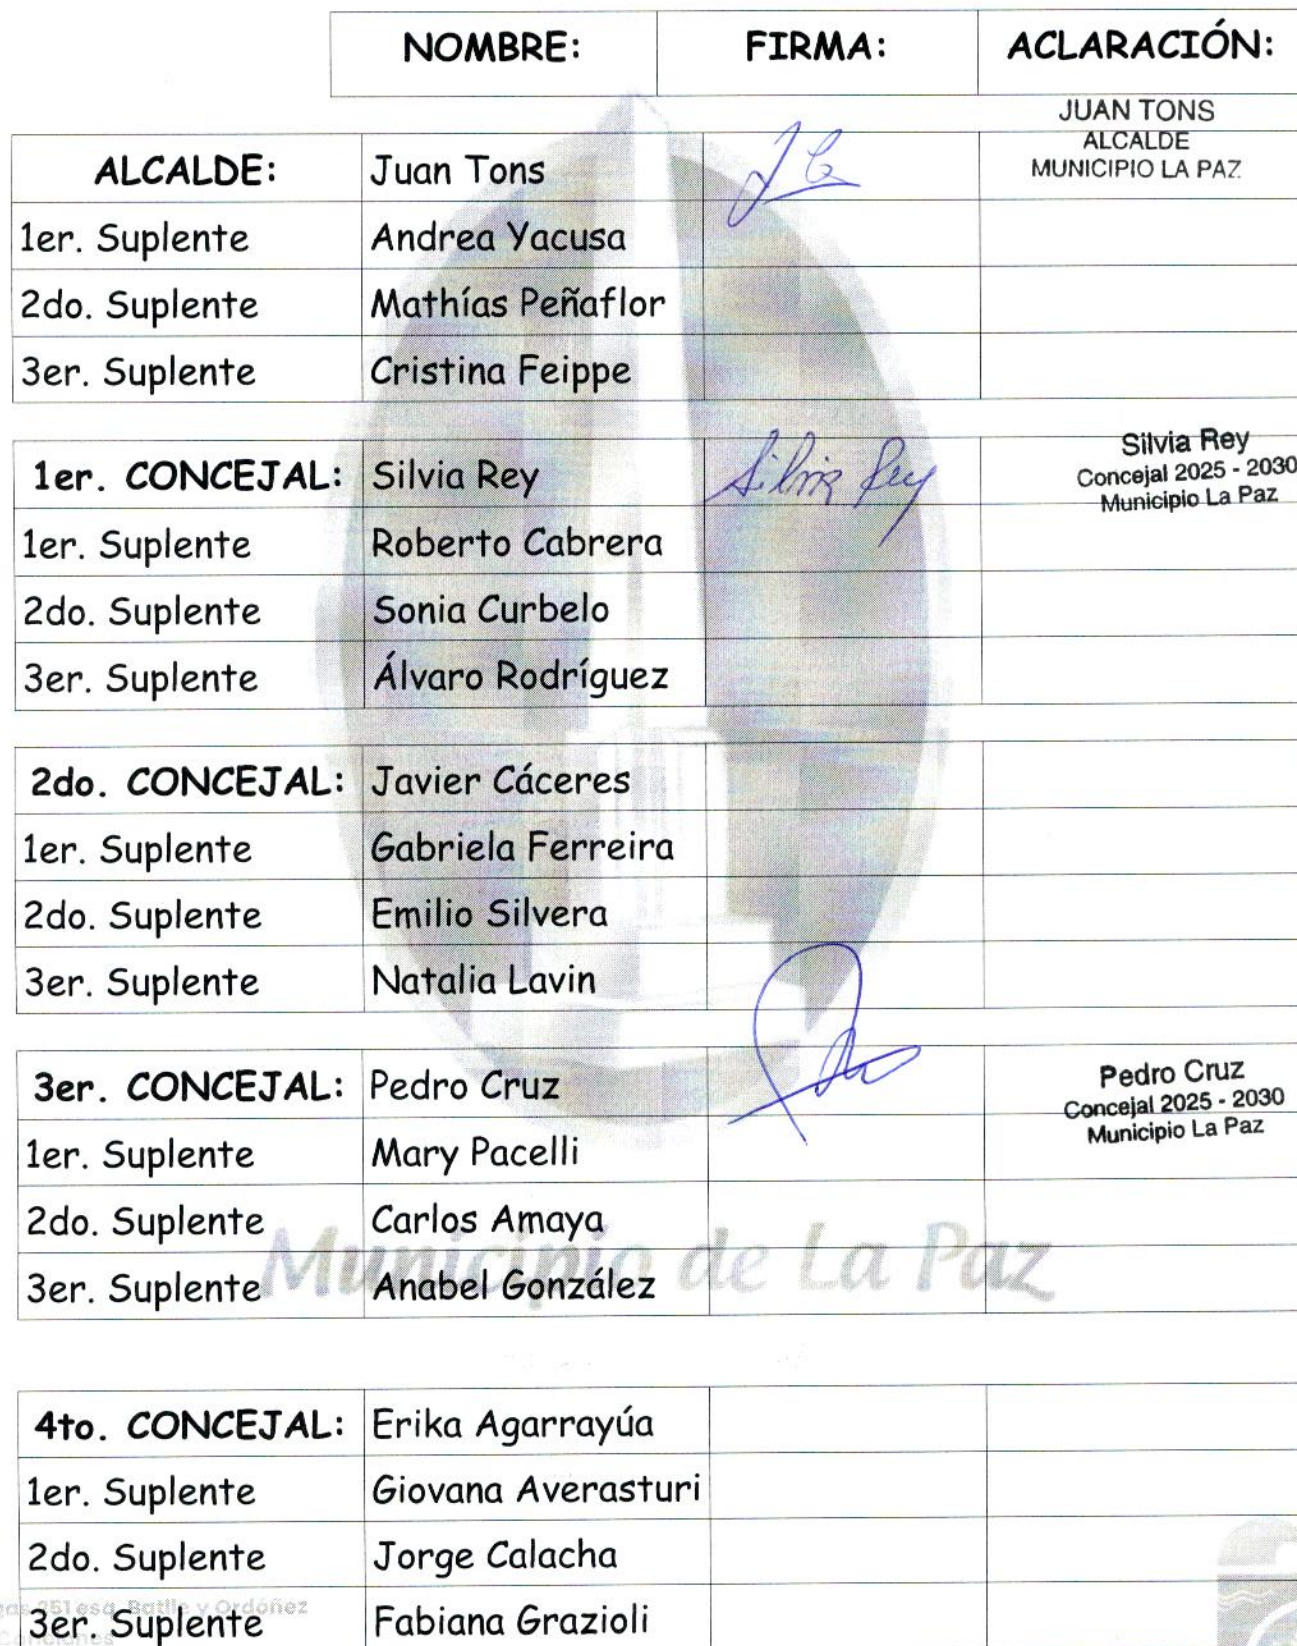 NOMBRE: FIRMA: ACLARACIÓN:
JUAN TONS
ALCALDE
MUNICIPIO LA PAZ
ALCALDE: Juan Tons
1er. Suplente Andrea Yacusa
2do. Suplente Mathías Peñaflor
3er. Suplente Cristina Feippe
1er. CONCEJAL: Silvia Rey Silvia Rey
Silvia Rey
Concejal 2025 - 2030
Municipio La Paz
1er. Suplente Roberto Cabrera
2do. Suplente Sonia Curbelo
3er. Suplente Álvaro Rodríguez
2do. CONCEJAL: Javier Cáceres
1er. Suplente Gabriela Ferreira
2do. Suplente Emilio Silvera
3er. Suplente Natalia Lavin
3er. CONCEJAL: Pedro Cruz
Pedro Cruz
Concejal 2025 - 2030
Municipio La Paz
1er. Suplente Mary Pacelli
2do. Suplente Carlos Amaya
3er. Suplente Anabel González
Municipio de La Paz
4to. CONCEJAL: Erika Agarrayúa
1er. Suplente Giovana Averasturi
2do. Suplente Jorge Calacha
251 esq. Batlle y Ordóñez
3er. Suplente Fabiana Grazioli